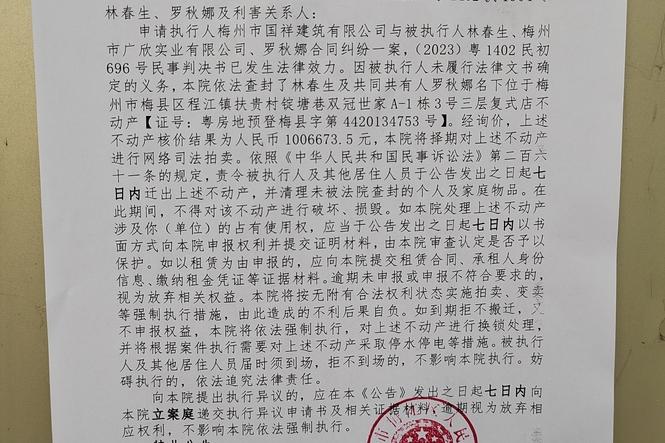 林春生、罗秋娜及利害关系人：
申请执行人梅州市国祥建筑有限公司与被执行人林春生、梅州
市广欣实业有限公司、罗秋娜合同纠纷一案，（2023）粤 1402 民初
696 号民事判决书已发生法律效力。因被执行人未履行法律文书确
定的义务，本院依法查封了林春生及共同共有人罗秋娜名下位于梅
州市梅县区程江镇扶贵村锭塘巷双冠世家 A-1 栋 3 号三层复式店不
动产【证号：粤房地预登梅县字第 4420134753 号】。经询价，上述
不动产核价结果为人民币 1006673.5 元，本院将择期对上述不动产
进行网络司法拍卖。依照《中华人民共和国民事诉讼法》第二百六
十一条的规定，责令被执行人及其他居住人员于公告发出之日起七
日内迁出上述不动产，并清理未被法院查封的个人及家庭物品。在
此期间，不得对该不动产进行破坏、损毁。如本院处理上述不动产
涉及你（单位）的占有使用权，应当于公告发出之日起七日内以书
面方式向本院申报权利并提交证明材料，由本院审查认定是否予以
保护。如以租赁为由申报的，应向本院提交租赁合同、承租人身份
信息、缴纳租金凭证等证据材料。逾期未申报或申报不符合要求的，
视为放弃相关权益。本院将按无附有合法权利状态实施拍卖、变卖
等强制执行措施，由此造成的不利后果自负。如到期拒不搬迁，又
不申报权益，本院将依法强制执行，对上述不动产进行换锁处理，
并将根据案件执行需要对上述不动产采取停水停电等措施。被执行
人及其他居住人员届时须到场，拒不到场的，不影响本院执行。妨
碍执行的，依法追究法律责任。
向本院提出执行异议的，应在本《公告》发出之日起七日内向
本院立案庭递交执行异议申请书及相关证据材料，逾期视为放弃相
应权利，不影响本院依法强制执行。